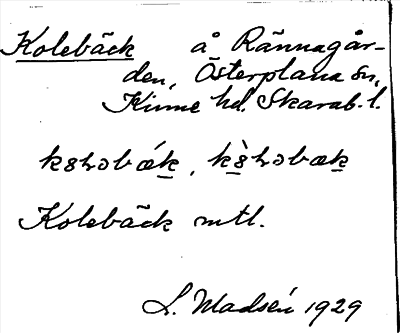 Kolebäck å Rännagår-
den, Österplana sn,
Kinne hd. Skarab. l.
Kolebäck mtl.
L. Madsén 1929